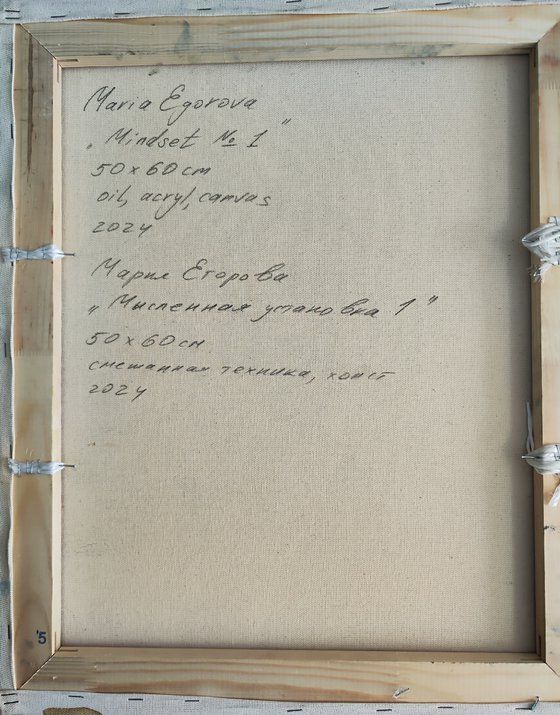 Maria Egorova
„Mindset № 1"
50 x 60 cm
oil, acryl, canvas
2024
Мария Егорова
„Мысленная установка 1"
50 x 60 см
смешанная техника, холст
2024
'5